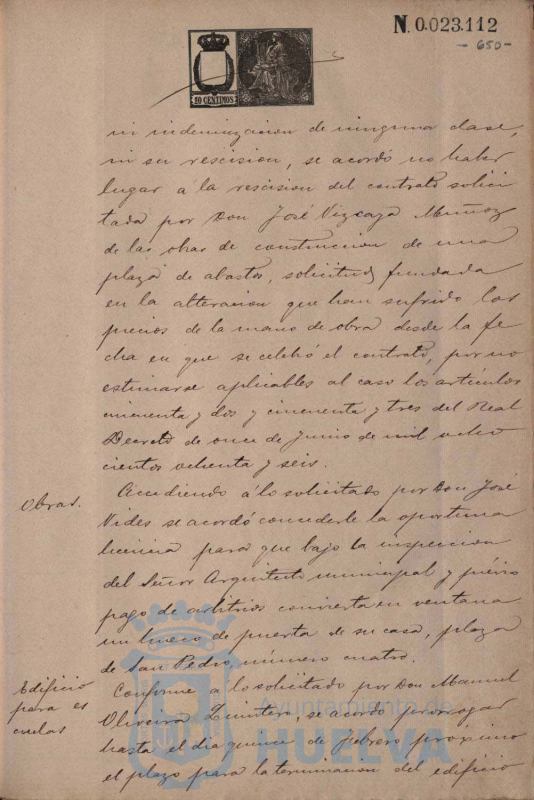 N. 0.023.112
- 650 -
20 CENTIMOS
ni indemnizacion de ninguna clase,
ni su rescision, se acordó no haber
lugar á la rescision del contrato solici
tada por Don José Vizcaya Muñoz
de las obras de construccion de una
plaza de abastos, solicitud fundada
en la alteracion que han sufrido los
precios de la mano de obra desde la fe
cha en que se celebró el contrato, por no
estimarse aplicables al caso los artículos
cincuenta y dos y cincuenta y tres del Real
Decreto de once de Junio de mil ocho
cientos ochenta y seis.
Obras.
Accediendo á lo solicitado por Don José
Vides se acordó concederle la oportuna
licencia para que bajo la inspeccion
del Señor Arquitecto municipal y prévio
pago de arbitrios convierta en ventana
un hueco de puerta de su casa, plaza
de San Pedro, número cuatro.
Edificio
para es
cuelas
Conforme a lo solicitado por Don Manuel
Oliveira Quintero, se acordó prorrogar
hasta el dia quince de febrero proximo
el plazo para la terminacion del edificio
Ayuntamiento de
HUELVA